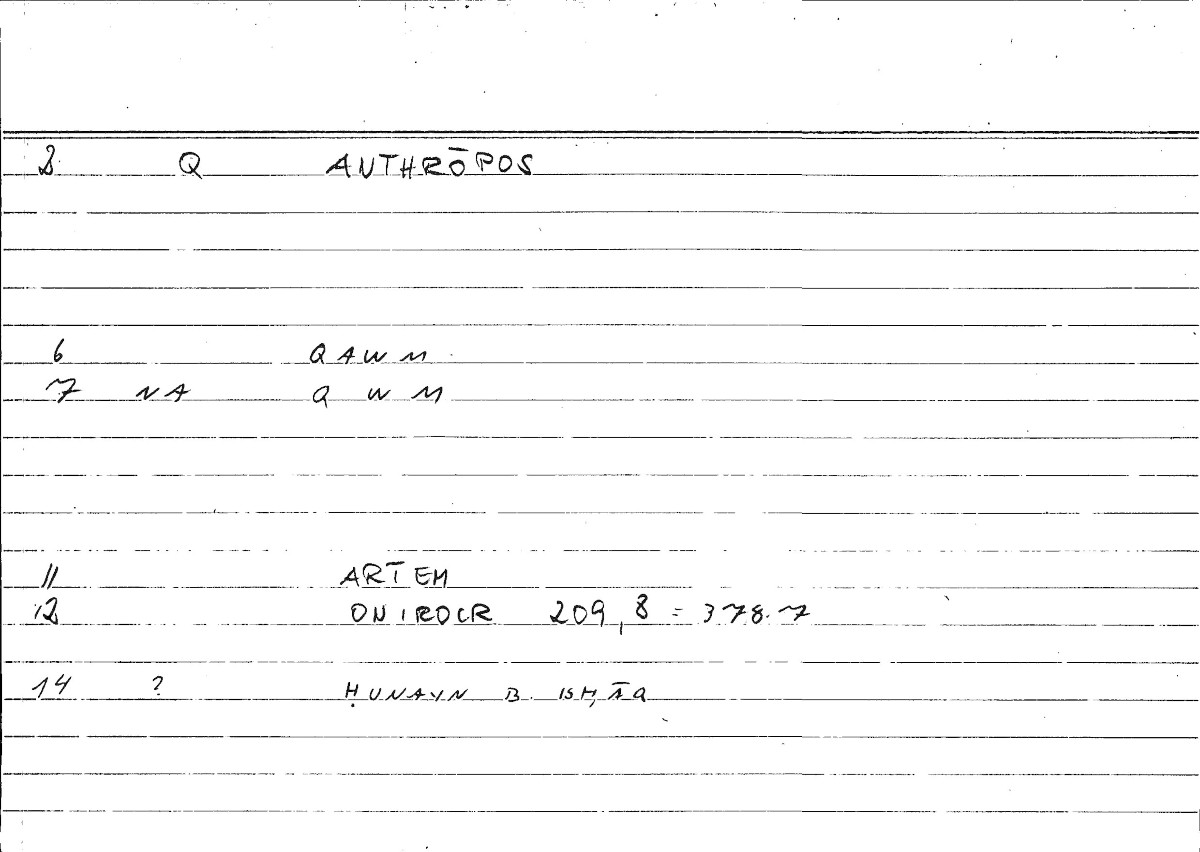 2 Q ANTHRŌPOS
6 QAWM
7 NA Q W M
11 ARTEM
12 ONIROCR 209,8 = 378.7
14 ? ḤUNAYN B. ISḤĀQ